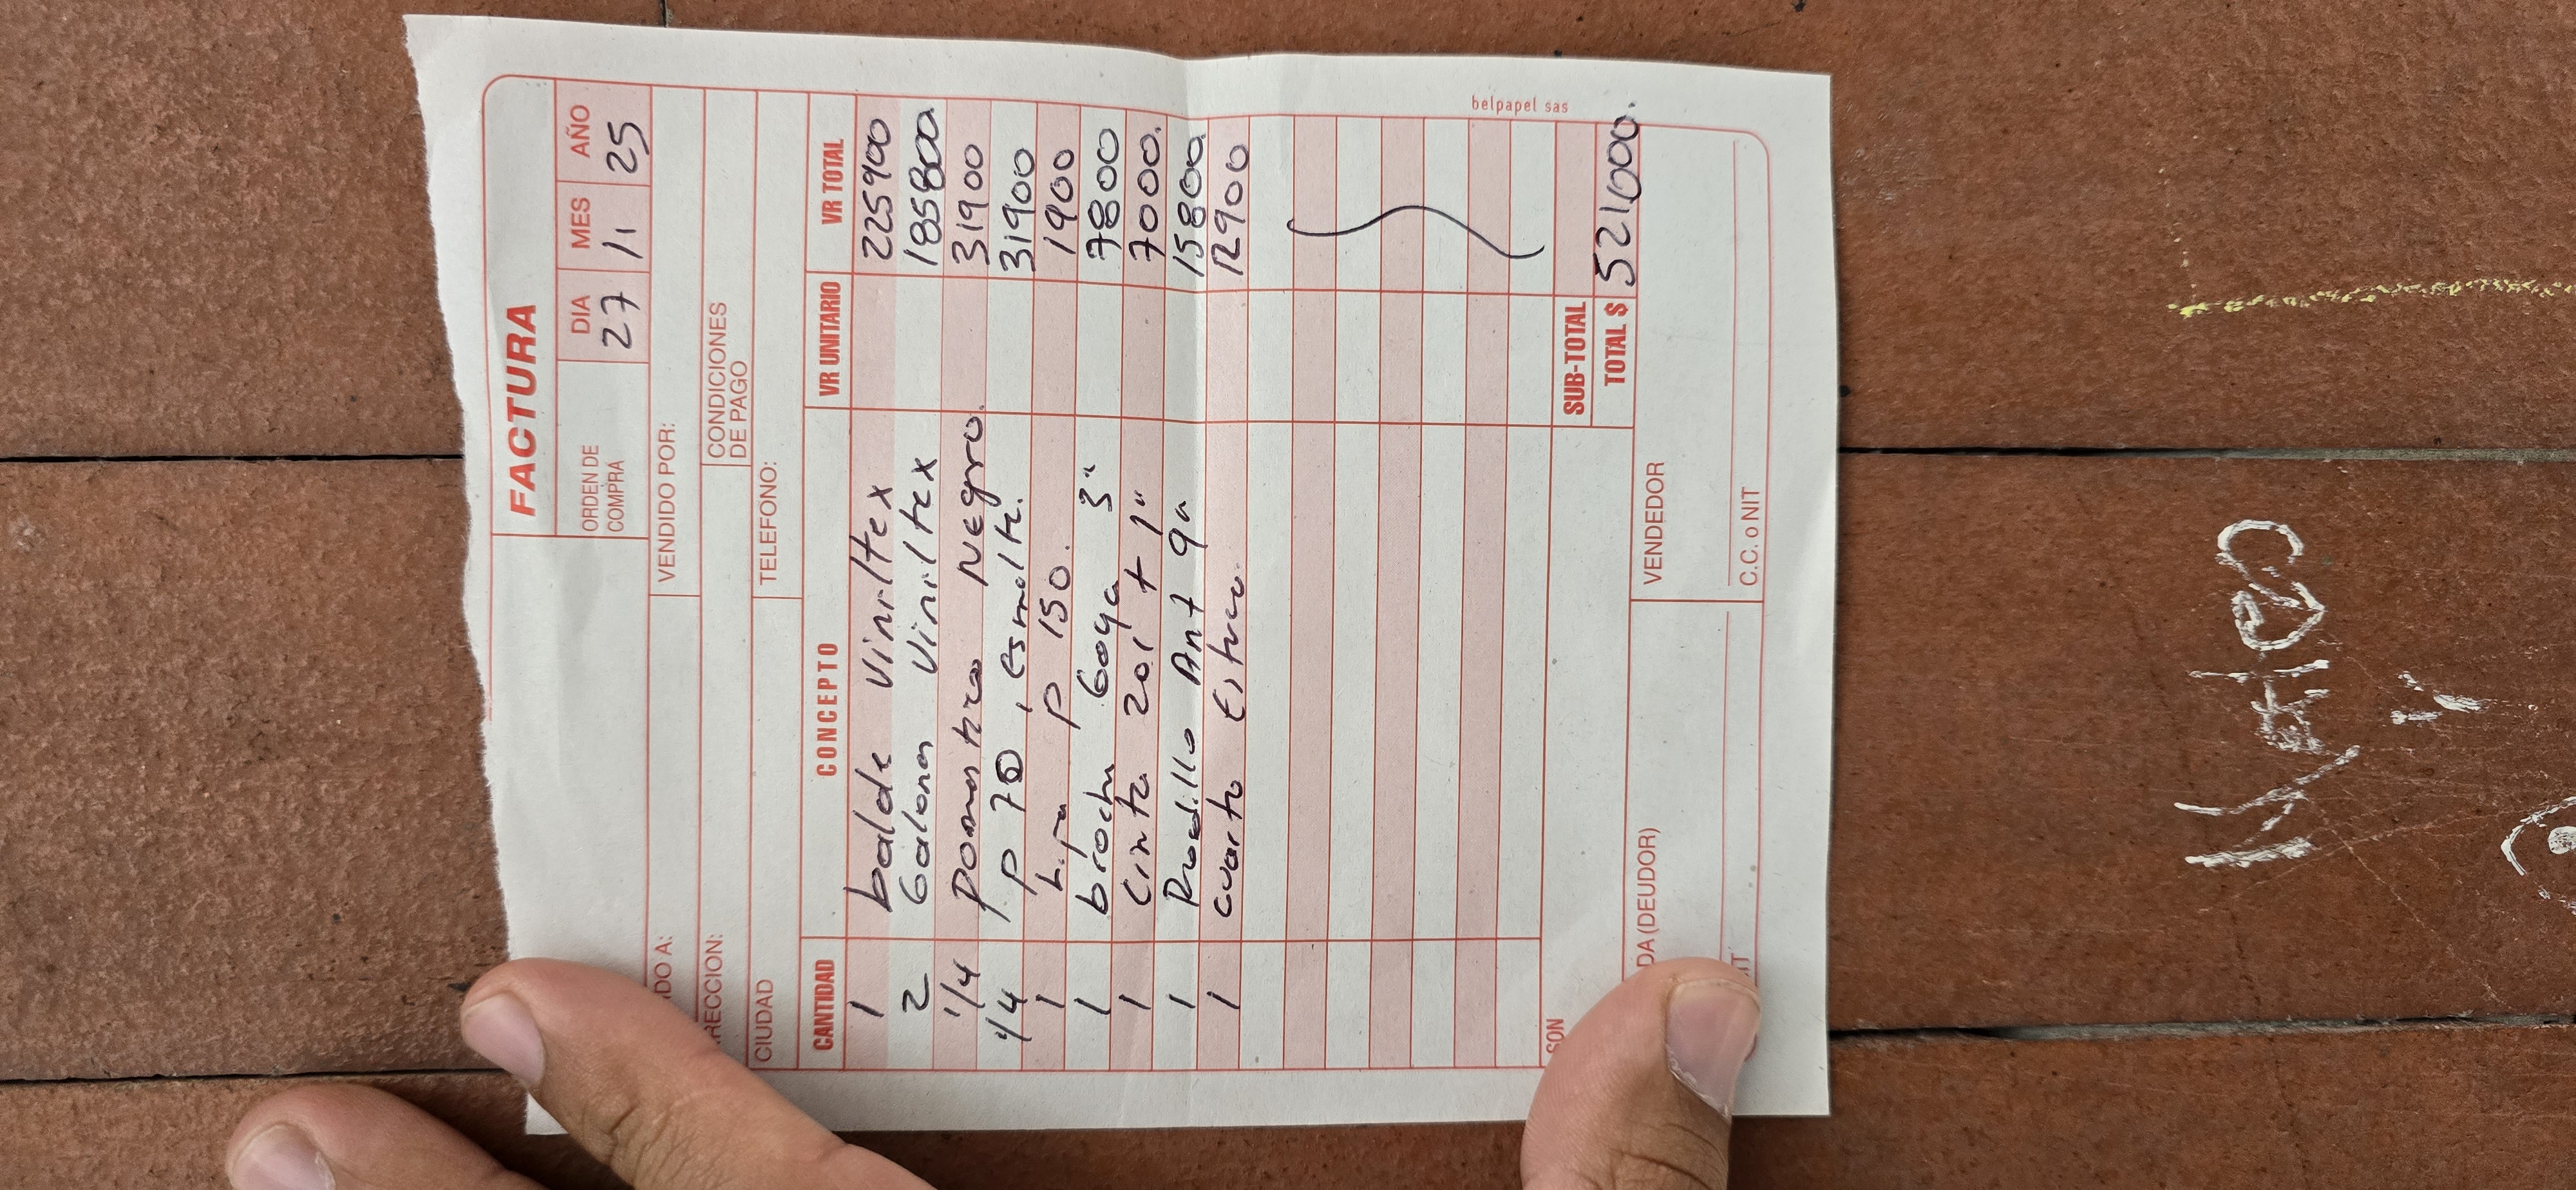 FACTURA
ORDEN DE COMPRA DIA MES AÑO
27 11 25
DO A: VENDIDO POR:
RECCION: CONDICIONES DE PAGO
CIUDAD TELEFONO:
CANTIDAD CONCEPTO VR UNITARIO VR TOTAL
1 balde Viniltex 225900
2 Galones Viniltex 185800
1/4 Negro. 31900
1/4 P 70 , esmalte. 31900
1 Lija P 150. 1900
1 brocha Goya 3" 7800
1 Cinta 201 + 1" 7000.
1 Rodillo Ant 9" 15800
1 cuarto Estuco. 12900
belpapel sas
SUB-TOTAL
SON TOTAL $ 521000.
DA (DEUDOR) VENDEDOR
IT C.C. o NIT
Mateo
y